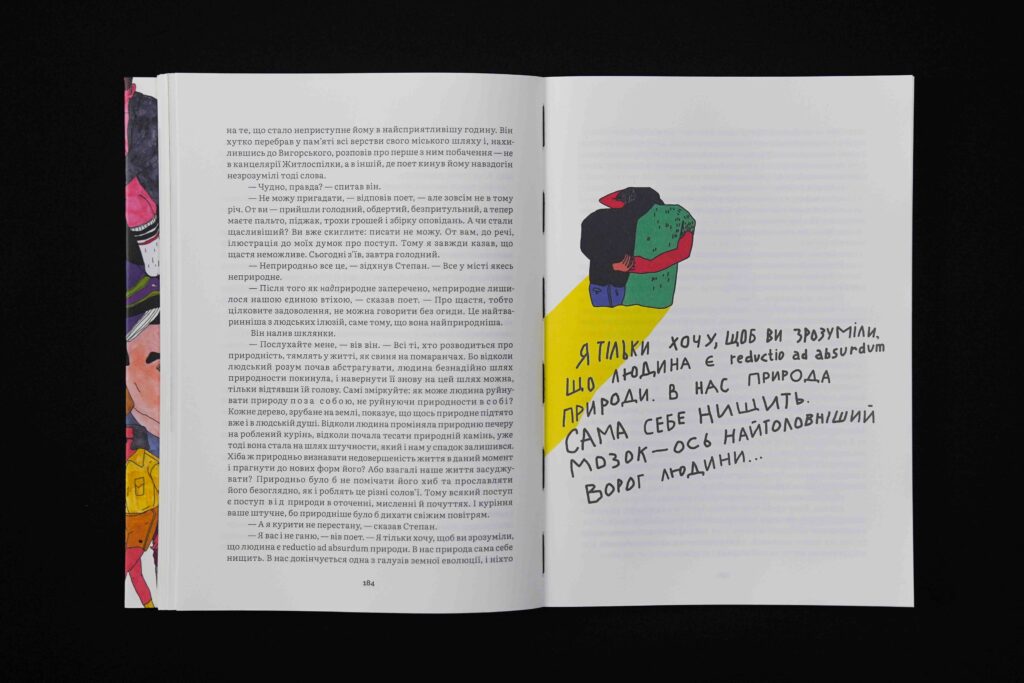 на те, що стало неприступне йому в найсприятливішу годину. Він
хутко перебрав у пам'яті всі верстви свого міського шляху і, нахи-
лившись до Вигорського, розповів про перше з ним побачення — не
в канцелярії Житлоспілки, а в іншій, де поет кинув йому навздогін
незрозумілі тоді слова.
— Чудно, правда? — спитав він.
— Не можу пригадати, — відповів поет, — але зовсім не в тому
річ. От ви — прийшли голодний, обдертий, безпритульний, а тепер
маєте пальто, піджак, трохи грошей і збірку оповідань. А чи стали
щасливіший? Ви вже скиглите: писати не можу. От вам, до речі,
ілюстрація до моїх думок про поступ. Тому я завжди казав, що
щастя неможливе. Сьогодні з'їв, завтра голодний.
— Неприродньо все це, — зідхнув Степан. — Все у місті якесь
неприродне.
— Після того як надприродне заперечено, неприродне лиши-
лося нашою єдиною втіхою, — сказав поет. — Про щастя, тобто
цілковите задоволення, не можна говорити без огиди. Це найтва-
ринніша з людських ілюзій, саме тому, що вона найприродніша.
Він налив шклянки.
— Послухайте мене, — вів він. — Всі ті, хто розводиться про
природність, тямлять у житті, як свиня на помаранчах. Бо відколи
людський розум почав абстрагувати, людина безнадійно шлях
природности покинула, і навернути її знову на цей шлях можна,
тільки відтявши їй голову. Самі зміркуйте: як може людина руйну-
вати природу поза собою, не руйнуючи природности в собі?
Кожне дерево, зрубане на землі, показує, що щось природне підтято
вже і в людській душі. Відколи людина проміняла природню печеру
на роблений курінь, відколи почала тесати природній камінь, уже
тоді вона стала на шлях штучности, який і нам у спадок залишився.
Хіба ж природньо визнавати недовершеність життя в даний момент
і прагнути до нових форм його? Або взагалі наше життя засуджу-
вати? Природньо було б не помічати його хиб та прославляти
його безоглядно, як і роблять це різні солов'ї. Тому всякий поступ
є поступ від природи в оточенні, мисленні й почуттях. І куріння
ваше штучне, бо природніше було б дихати свіжим повітрям.
— А я курити не перестану, — сказав Степан.
— Я вас і не ганю, — вів поет. — Я тільки хочу, щоб ви зрозуміли,
що людина є reductio ad absurdum природи. В нас природа сама себе
нищить. В нас докінчується одна з галузів земної еволюції, і ніхто
184
Я ТІЛЬКИ ХОЧУ, ЩОБ ВИ ЗРОЗУМІЛИ,
ЩО ЛЮДИНА Є reductio ad absurdum
ПРИРОДИ. В НАС ПРИРОДА
САМА СЕБЕ НИЩИТЬ.
МОЗОК — ОСЬ НАЙГОЛОВНІШИЙ
ВОРОГ ЛЮДИНИ...